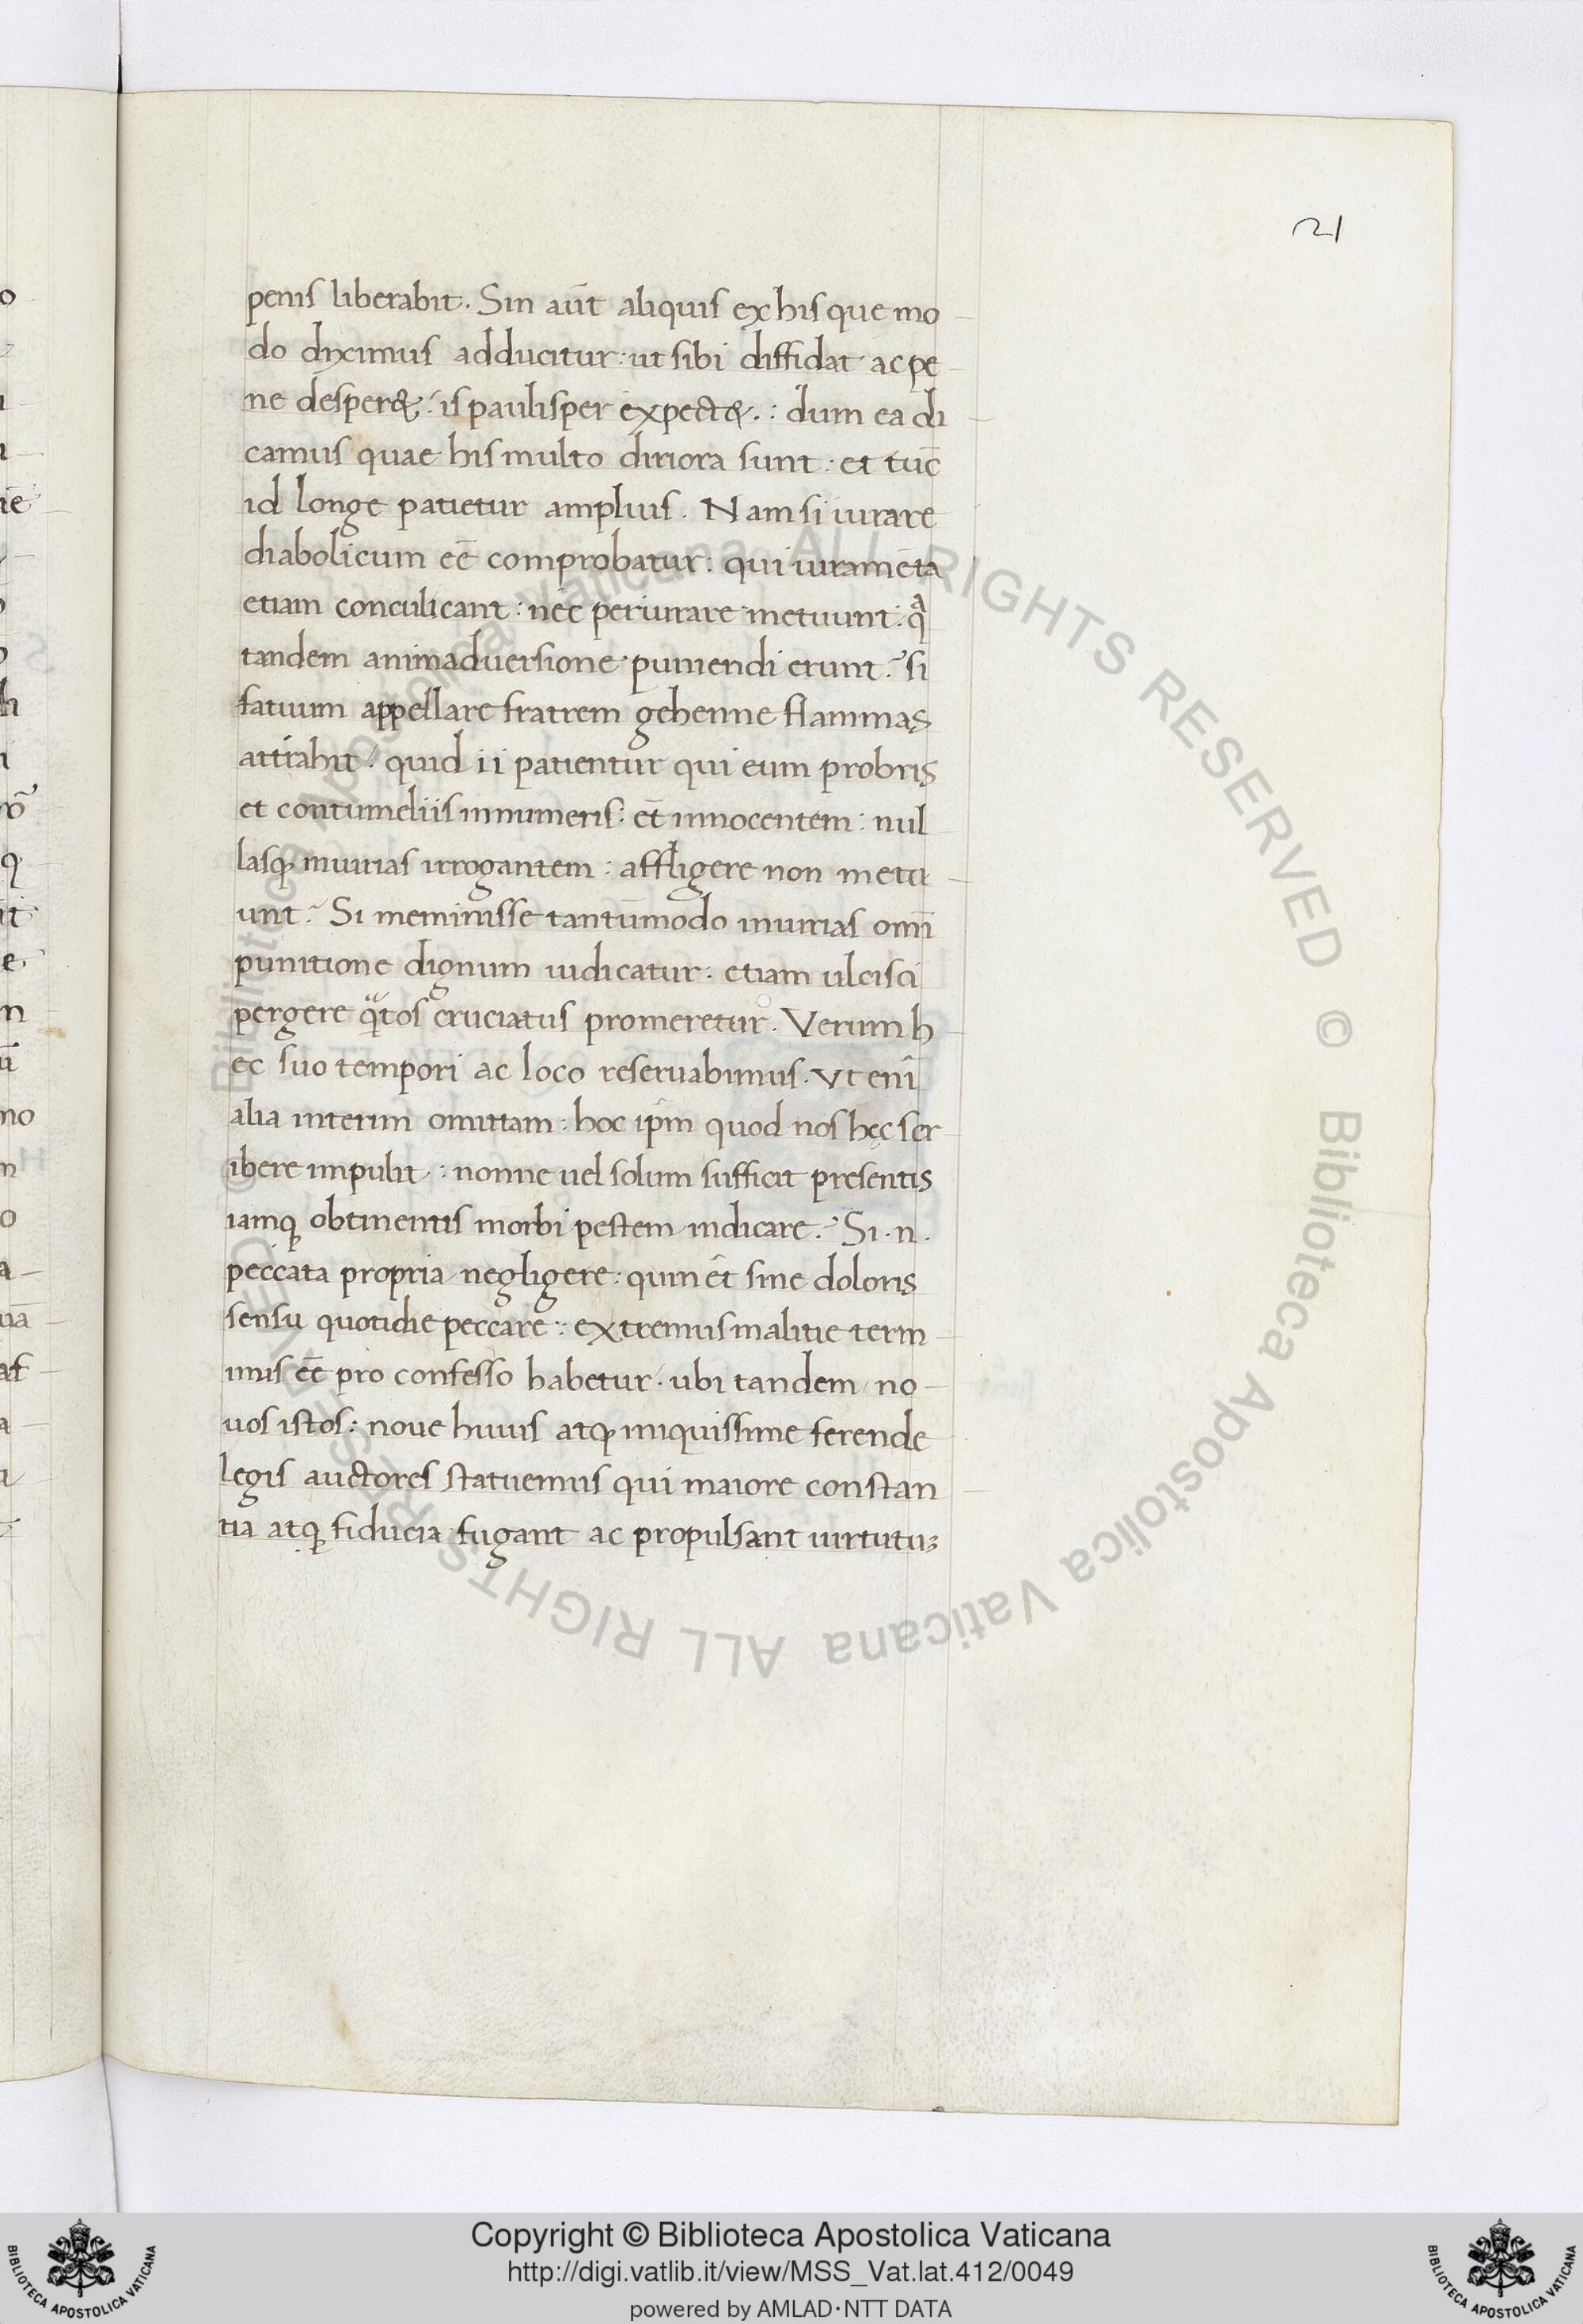 21
penis liberabit. Sin aūt aliquis ex his que mo
do dyximus adducitur: ut sibi diffidat ac pe
ne desper&: is paulisper expect&: dum ea di
camus quae his multo diriora sunt: et tūc
id longe patietur amplius. Nam si iurare
diabolicum eē comprobatur: qui iuramēta
etiam conculicant: nec periurare metuunt: qᵃ
tandem animaduersione puniendi erunt? si
fatuum appellare fratrem gehenne flammas
attrahit: quid ii patientur qui eum probris
et contumeliis innumeris: et̄ innocentem: nul
lasq; iniurias irrogantem: affligere non metu
unt? Si meminisse tantūmodo iniurias omī
punitione dignum iudicatur: etiam ulcisci
pergere qᵘtos cruciatus promeretur. Verum h
ec suo tempori ac loco reseruabimus. Vt enī
alia interim omittam: hoc ip̄m quod nos hęc scr
ibere impulit: nonne uel solum sufficit presentis
iamq; obtinentis morbi pestem indicare? Si .n.
peccata propria negligere: quin et̄ sine doloris
sensu quotidie peccare: extremus malitie term
inus eē pro confesso habetur. ubi tandem no
uos istos: noue huius atq; iniquissime ferende
legis auctores statuemus qui maiore constan
tia atq; fiducia fugant ac propulsant uirtutuꝫ
© Biblioteca Apostolica Vaticana ALL RIGHTS RESERVED © Biblioteca Apostolica Vaticana ALL RIGHTS RESERVED
Copyright © Biblioteca Apostolica Vaticana
http://digi.vatlib.it/view/MSS_Vat.lat.412/0049
powered by AMLAD·NTT DATA
BIBLIOTECA APOSTOLICA VATICANA
BIBLIOTECA APOSTOLICA VATICANA